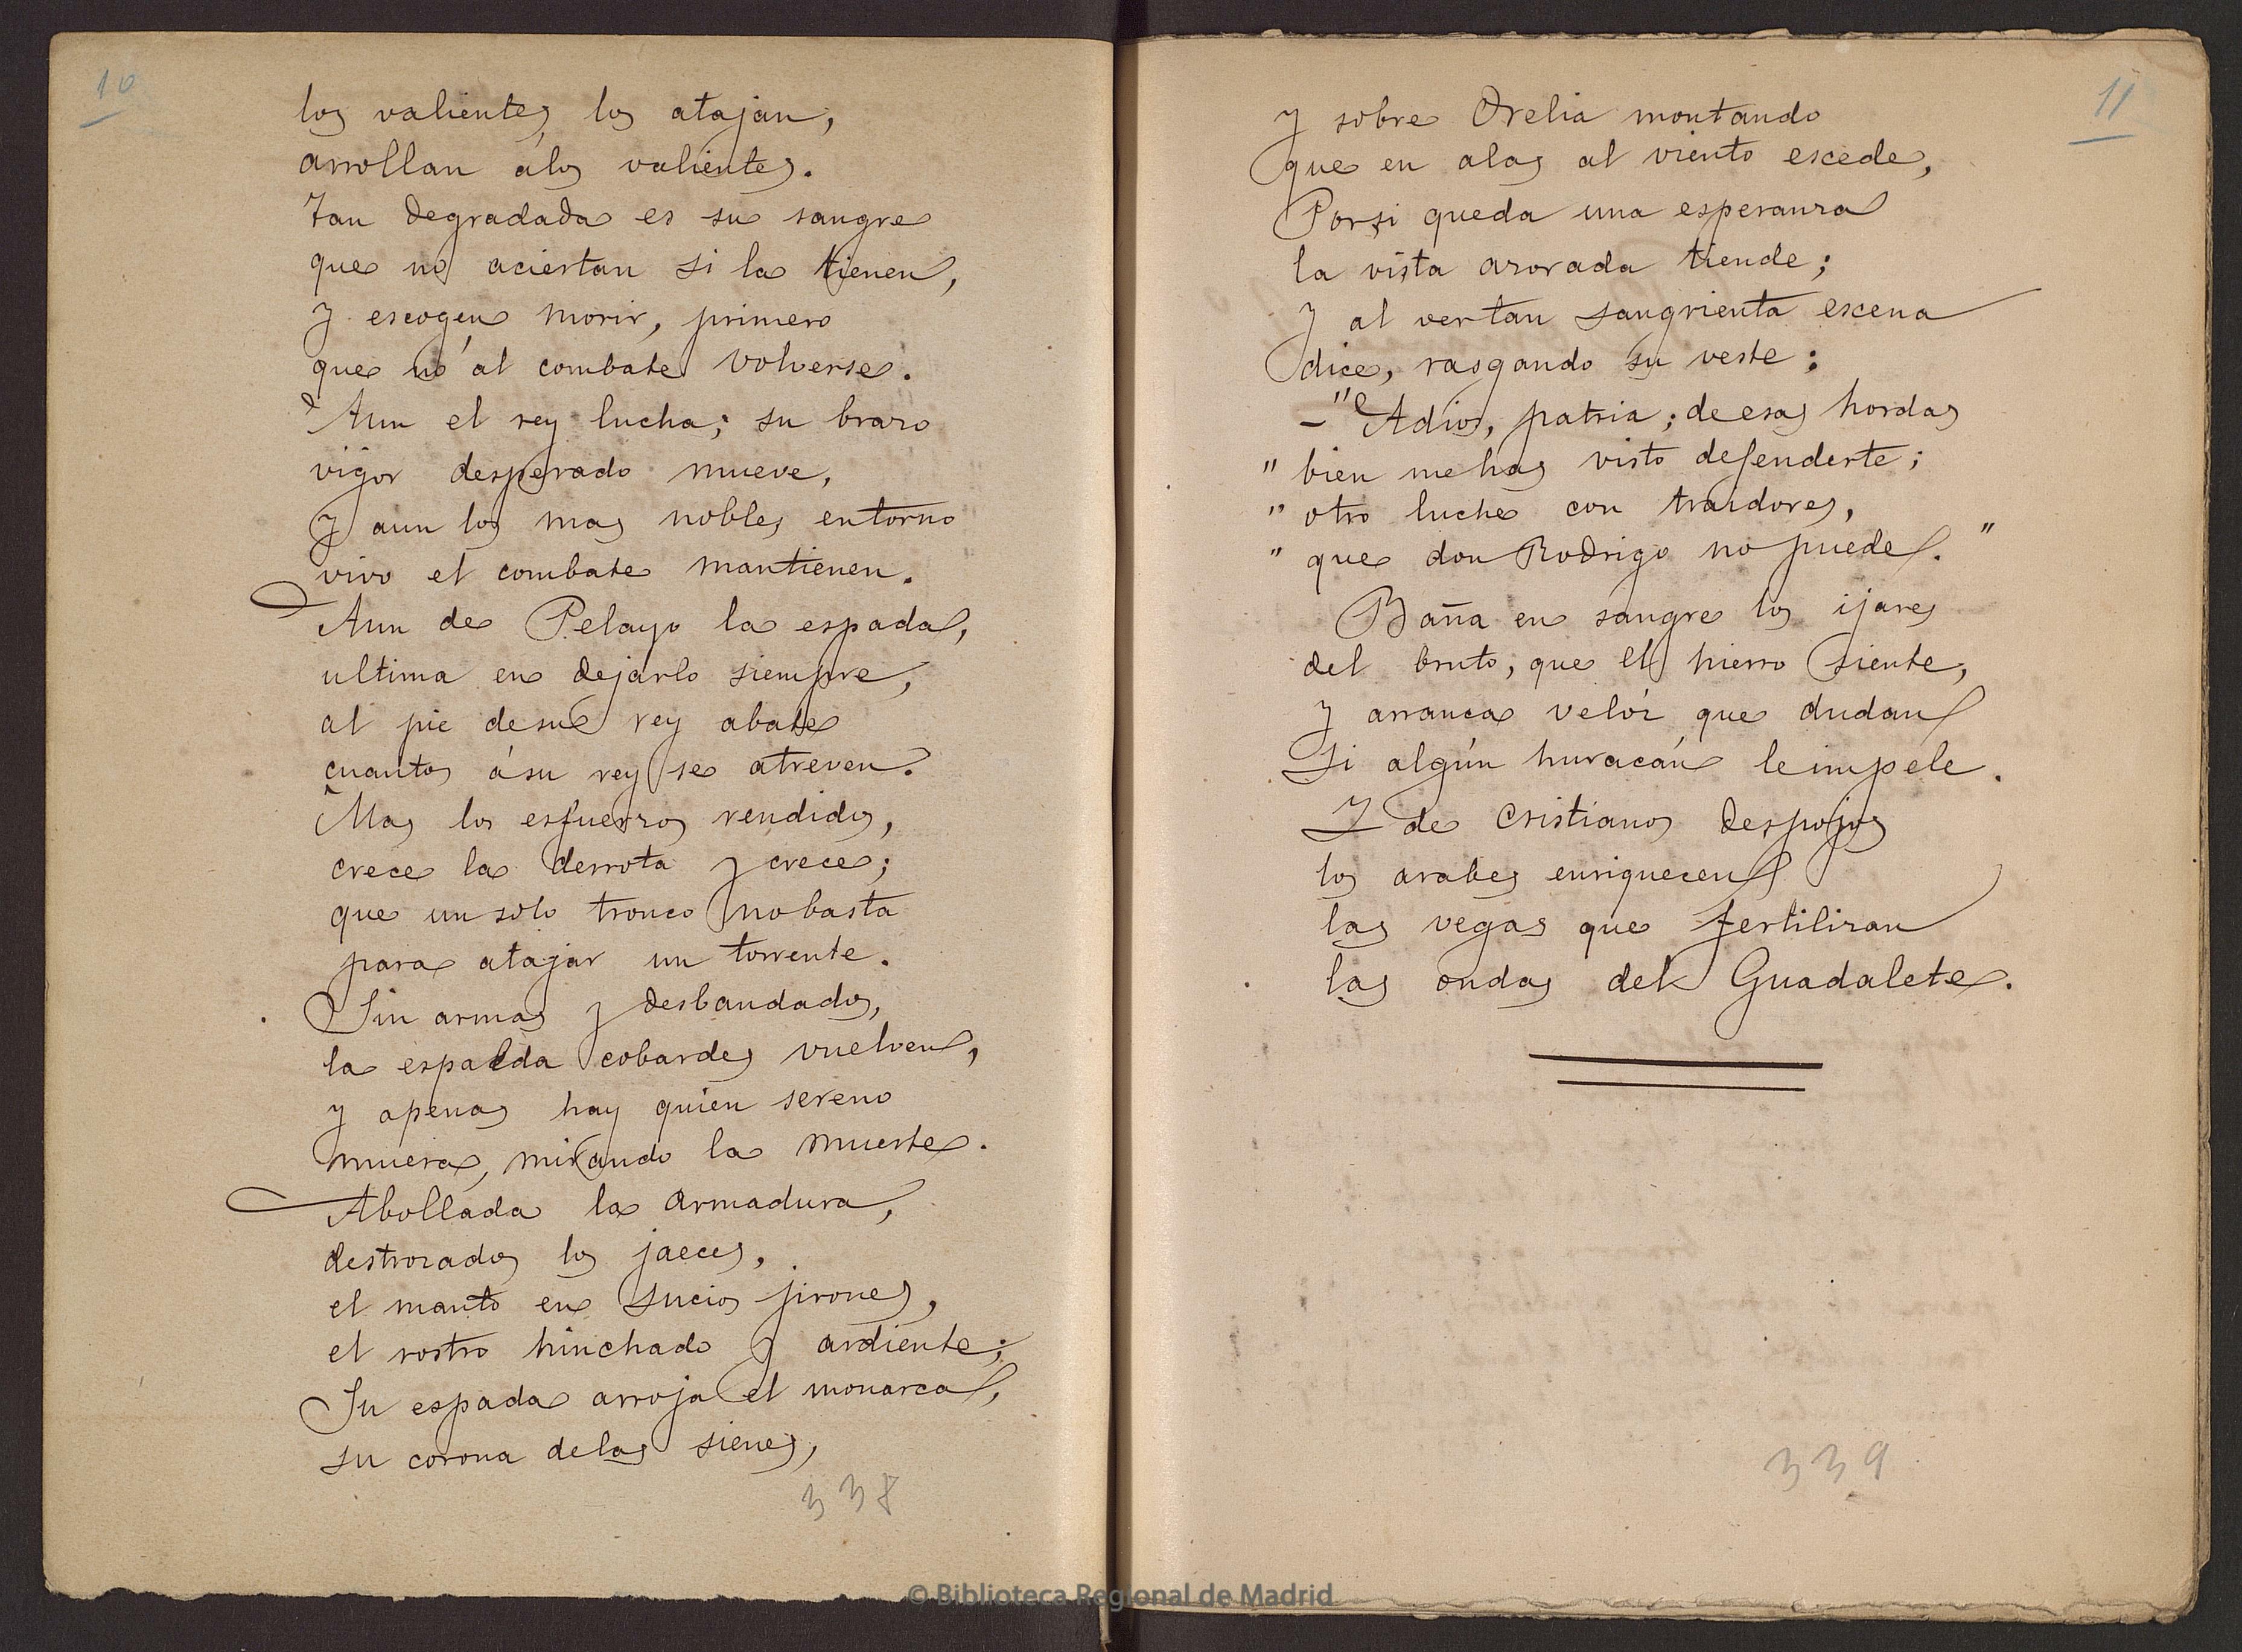 10
los valientes los atajan,
arrollan álos valientes.
Tan degradada es su sangre
que no aciertan si la tienen,
y escogen morir, primero
que no al combate volverse.
Aun el rey lucha; su brazo
vigor desperado mueve,
y aun los mas nobles entorno
vivo el combate mantienen.
Aun de Pelayo la espada,
ultima en dejarlo siempre,
al pie desu rey abate
cuantos ásu rey se atreven.
Mas los esfuerzos rendidos,
crece la derrota y crece;
que un solo tronco no basta
para atajar un torrente.
Sin armas y desbandados,
la espalda cobardes vuelven,
y apenas hay quien sereno
muera, mirando la muerte.
Abollada la armadura,
destrozados los jaeces,
el manto en sucios jirones,
el rostro hinchado y ardiente;
Su espada arroja el monarca,
su corona delas sienes,
338
11
y sobre Orelia montando
que en alas al viento escede,
Porsi queda una esperanza
la vista azorada tiende;
y al vertan sangrienta escena
dice, rasgando su veste:
–"Adios, patria; de esas hordas
" bien mehas visto defenderte;
" otro luche con traidores,
" que don Rodrigo no puede."
Baña en sangre los ijares
del bruto, que el hierro siente,
y arranca velóz que dudan
si algún huracán leimpele.
Y de cristianos despojos
los arabes enriquecen
las vegas que fertilizan
las ondas del Guadalete.
339
© Biblioteca Regional de Madrid